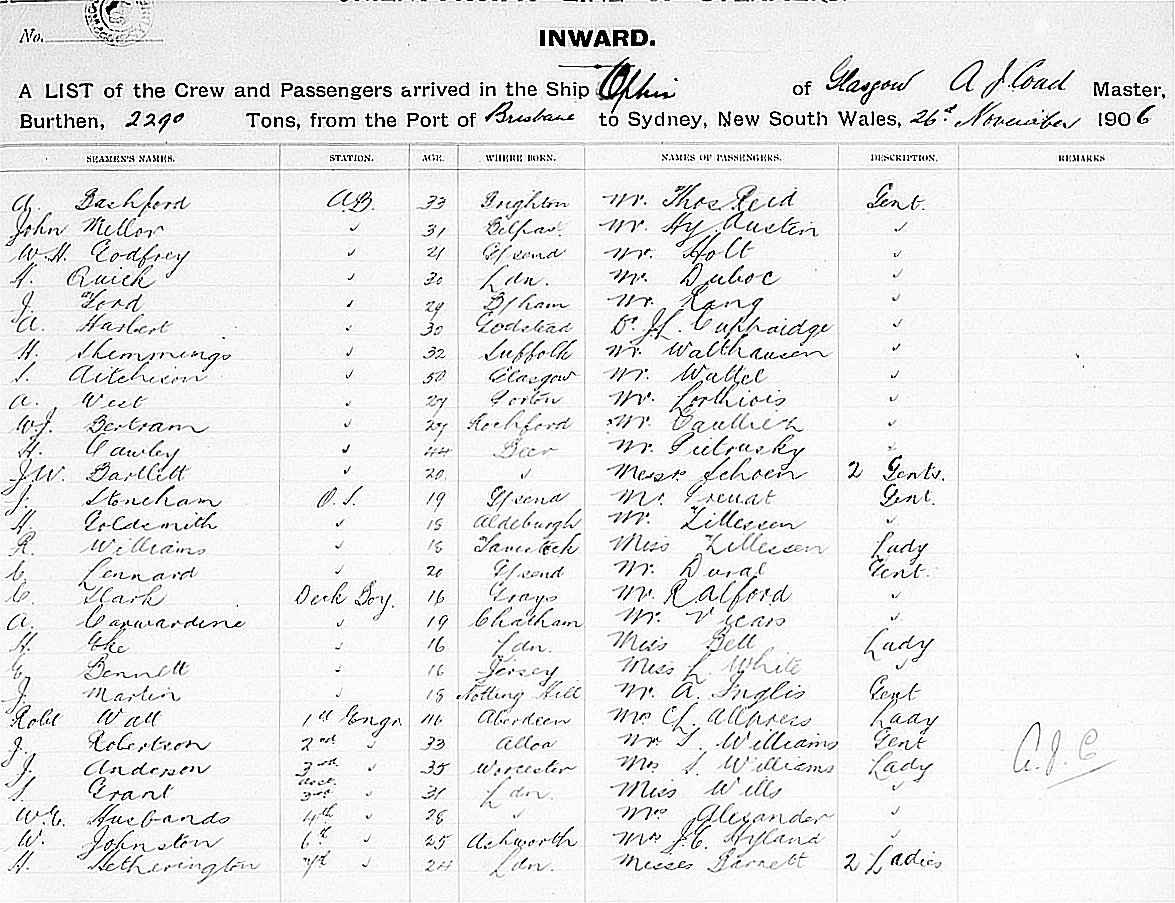 No.
INWARD.
A LIST of the Crew and Passengers arrived in the Ship Ophir of Glasgow A J Coad Master,
Burthen, 2290 Tons, from the Port of Brisbane to Sydney, New South Wales, 26th November 1906
SEAMEN'S NAMES. STATION. AGE. WHERE BORN. NAMES OF PASSENGERS. DESCRIPTION. REMARKS
A. Bashford A.B. 33 Brighton Mr. Thos Reid Gent.
John Mellor " 31 Belfast Mr. Hy Austin "
W.H. Godfrey " 21 G'send Mr. Holt "
H. Quick " 30 Ldn. Mr. Duboc "
J. Ford " 29 B'ham Mr. Lang "
A. Harbert " 30 Godstead Dr. J.L. Cuppaidge "
H. Shemmings " 32 Suffolk Mr. Walthausen "
S. Aitchison " 50 Glasgow Mr. Wattel "
A. West " 27 Gorton Mr. Lorthiois "
W.J. Bertram " 27 Rochford Mr. Caulliez "
H. Cawley " 44 Beer Mr. Pietrusky "
J.W. Bartlett " 20 " Messrs Schoen 2 Gents.
J. Stoneham O.S. 19 G'send Mr. Gent.
H. Goldsmith " 18 Aldeburgh Mr. Zillessen "
R. Williams " 18 Tavistock Miss Zillessen Lady
C. Lennard " 20 G'send Mr. Duval Gent.
C. Clark Deck Boy. 16 Grays Mr. Ralford "
A. Carwardine " 19 Chatham Mr. Vicars "
H. Eke " 16 Ldn. Miss Bell Lady
E. Bennett " 16 Jersey Miss L White "
J. Martin " 18 Notting Hill Mr. A. Inglis Gent
Robt Wall 1st Engr 46 Aberdeen Mrs Ch. Allpress Lady
J. Robertson 2nd " 33 Alloa Mr. S. Williams Gent
J. Anderson 3rd " 35 Worcester Mrs S. Williams Lady A.J.C
S. Grant Asst. 3rd " 31 Ldn. Miss Wills "
W.E. Husbands 4th " 28 " Mrs Alexander "
W. Johnston 6th " 25 Ashworth Mrs J.C. Hyland "
H. Hetherington 7th " 24 Ldn. Misses Barnett 2 Ladies